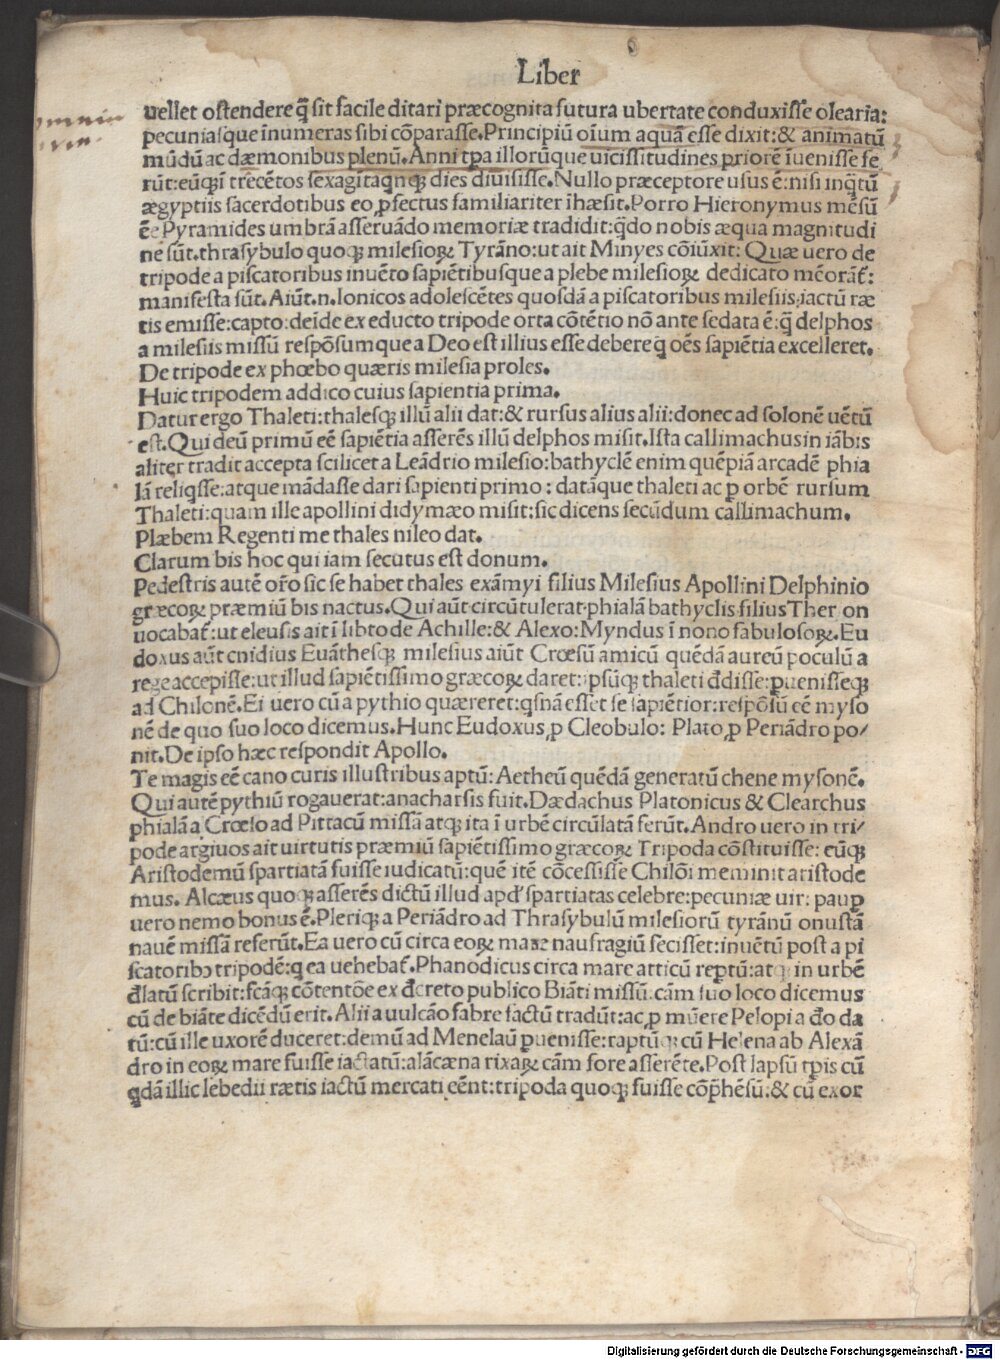 Liber
uellet ostendere q̃ sit facile ditari præcognita futura ubertate conduxisse olearia:
pecuniasque īnumeras sibi cōparasse.Principiū oīum aquā esse dixit:& animatū
mūdū ac dæmonibus plenū.Anni tp̄a illorūque uicissitudines priorē īuenisse fe
rūt:eūq;ī trecētos sexagītaqnq; dies diuisisse.Nullo præceptore usus ē:nisi inq̄tū
ægyptiis sacerdotibus eo ꝓfectus familiariter īhæsit.Porro Hieronymus mēsū
ēe Pyramides umbrā asseruādo memoriæ tradidit:q̄do nobis æqua magnitudi
ne sūt.thrasybulo quoq; milesioꝝ Tyrāno:ut ait Minyes cōiūxit: Quæ uero de
tripode a piscatoribus inuēto sapiētibusque a plebe milesioꝝ dedicato mēorāt̃:
manifesta sūt.Aiūt.n.Ionicos adolescētes quosdā a piscatoribus milesiis iactū ræ
tis emisse:capto:deīde ex educto tripode orta cōtētio nō ante sedata ē:q̃ delphos
a milesiis missū respōsumque a Deo est illius esse debere q oēs sapiētia excelleret.
De tripode ex phœbo quæris milesia proles.
Huic tripodem addico cuius sapientia prima.
Datur ergo Thaleti:thalesq; illū alii dat:& rursus alius alii:donec ad solonē uētū
est.Qui deū primū eē sapiētia asserēs illū delphos misit.Ista callimachus in iābis
aliter tradit accepta scilicet a Leādrio milesio:bathyclē enim quēpiā arcadē phia
lā reliqsse:atque mādasse dari sapienti primo : datāque thaleti ac ꝑ orbē rursum
Thaleti:quam ille apollini didymæo misit:sic dicens secūdum callimachum.
Plæbem Regenti me thales nileo dat.
Clarum bis hoc qui iam secutus est donum.
Pedestris autē or̄o sic se habet thales exāmyi filius Milesius Apollini Delphinio
græcoꝝ præmiū bis nactus.Qui aūt circūtulerat phialā bathyclis filius Ther on
uocabat̃:ut eleusis ait ī libro de Achille:& Alexo:Myndus ī nono fabulosoꝝ.Eu
doxus aūt cnidius Euāthesq; milesius aiūt Crœsū amicū quēdā aureū poculū a
rege accepisse:ut illud sapiētissimo græcoꝝ daret:ipsūq; thaleti đdisse:ꝑuenisseq;
ad Chilonē.Ei uero cū a pythio quæreret:qsnā esset se sapiētior:respōsū eē myso
nē de quo suo loco dicemus.Hunc Eudoxus ꝓ Cleobulo: Plato ꝓ Periādro po/
nit.De ipso hæc respondit Apollo.
Te magis eē cano curis illustribus aptū: Aetheū quēdā generatū chene mysonē.
Qui autē pythiū rogauerat:anacharsis fuit.Dædachus Platonicus & Clearchus
phialā a Crœso ad Pittacū missā atq; ita ī urbē circūlatā ferūt.Andro uero in tri/
pode argiuos ait uirtutis præmiū sapiētissimo græcoꝝ Tripoda cōstituisse: eūq;
Aristodemū spartiatā fuisse iudicatū:quē itē cōcessisse Chilōi meminit aristode
mus. Alcæus quoq; asserēs dictū illud apđ spartiatas celebre:pecuniæ uir: pauꝑ
uero nemo bonus ē.Pleriq; a Periādro ad Thrasybulū milesiorū tyrānū onustā
nauē missā referūt.Ea uero cū circa eoꝝ mare naufragiū fecisset:inuētū post a pi
scatoribꝰ tripodē:q ea uehebat̃.Phanodicus circa mare atticū reptū:atq; in urbē
đlatū scribit:fcāq; cōtentōe ex đcreto publico Biāti missū:cām suo loco dicemus
cū de biāte dicēdū erit. Alii a uulcāo fabre factū tradūt:ac ꝓ mūere Pelopi a đo da
tū:cū ille uxorē duceret:demū ad Menelaū ꝑuenisse:raptūq; cū Helena ab Alexā
dro in eoꝝ mare fuisse iactatū:alācæna rixaꝝ cām fore asserēte.Post lapsū tp̄is cū
qdā illic lebedii rætis iactū mercati eēnt:tripoda quoq; fuisse cōp̄hēsū:& cū exor
Digitalisierung gefördert durch die Deutsche Forschungsgemeinschaft - DFG